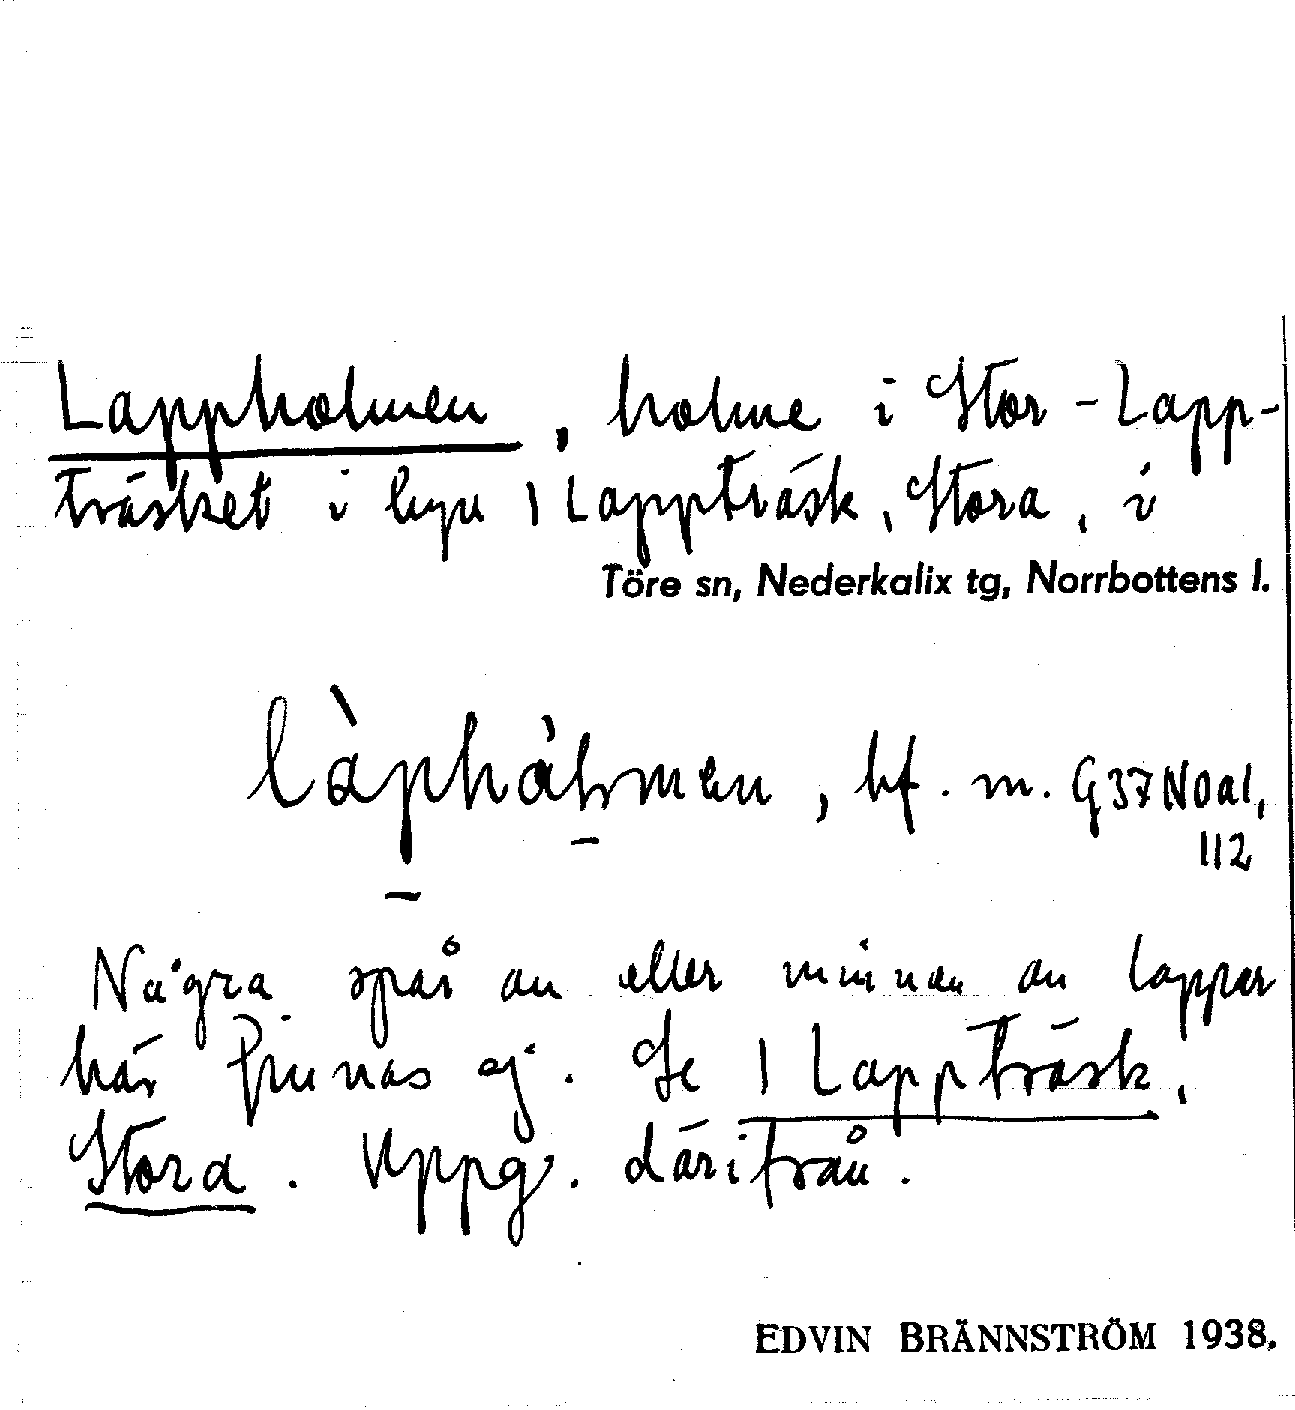 Lappholmen, holme i Stor-Lapp-
träsket i byn 1 Lappträsk, Stora, i
Töre sn, Nederkalix tg, Norrbottens l.
bf. m. G37NOa1,
112
Några spår av eller minnen av lappar
här finnas ej. Se 1 Lappträsk,
Stora. Uppg. därifrån.
EDVIN BRÄNNSTRÖM 1938.